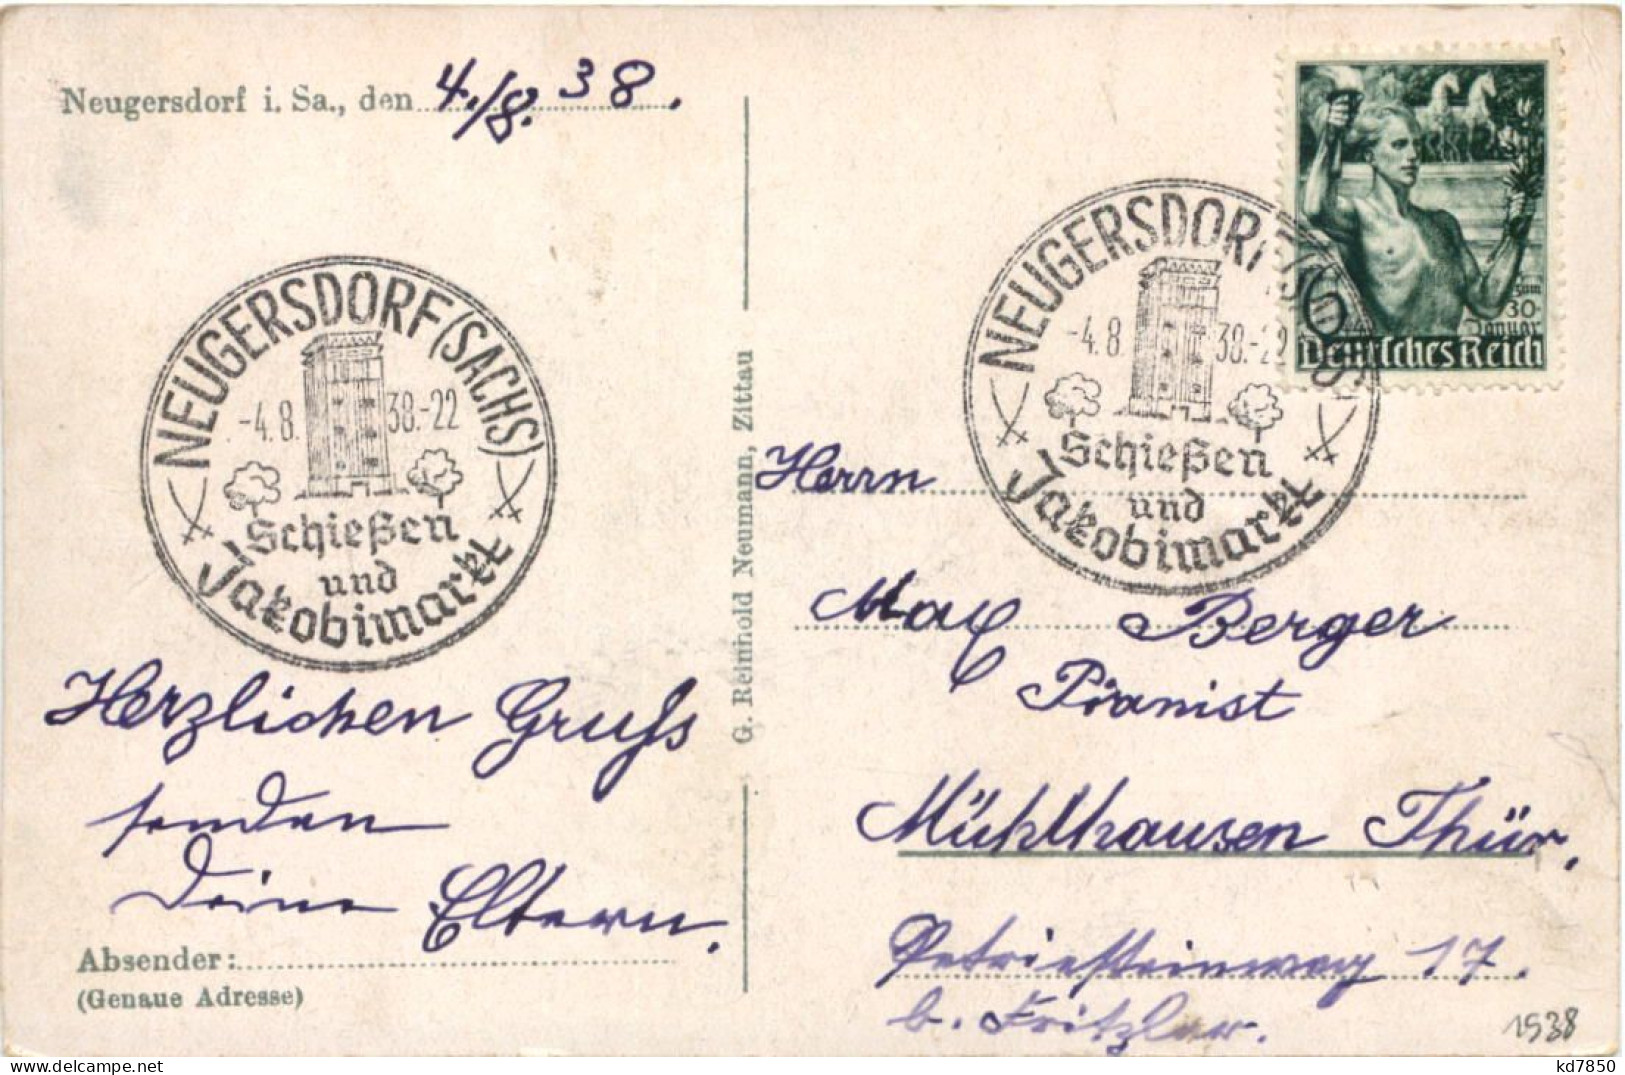 Neugersdorf i. Sa., den 4./8. 38.
NEUGERSDORF (SACHS)
-4.8.38.-22
Schießen
und
Jakobimarkt
Herzlichen Gruß
senden
Deine Eltern.
Absender:
(Genaue Adresse)
G. Reinhold Neumann, Zittau
zum
30.
Januar
Deutsches Reich
NEUGERSDORF (SACHS)
-4.8.38.-22
Schießen
und
Jakobimarkt
Herrn
Max Berger
Pianist
Mühlhausen Thür.
Petriesteinweg 17.
b. Fritzlar.
1938
delcampe.net
kd7850